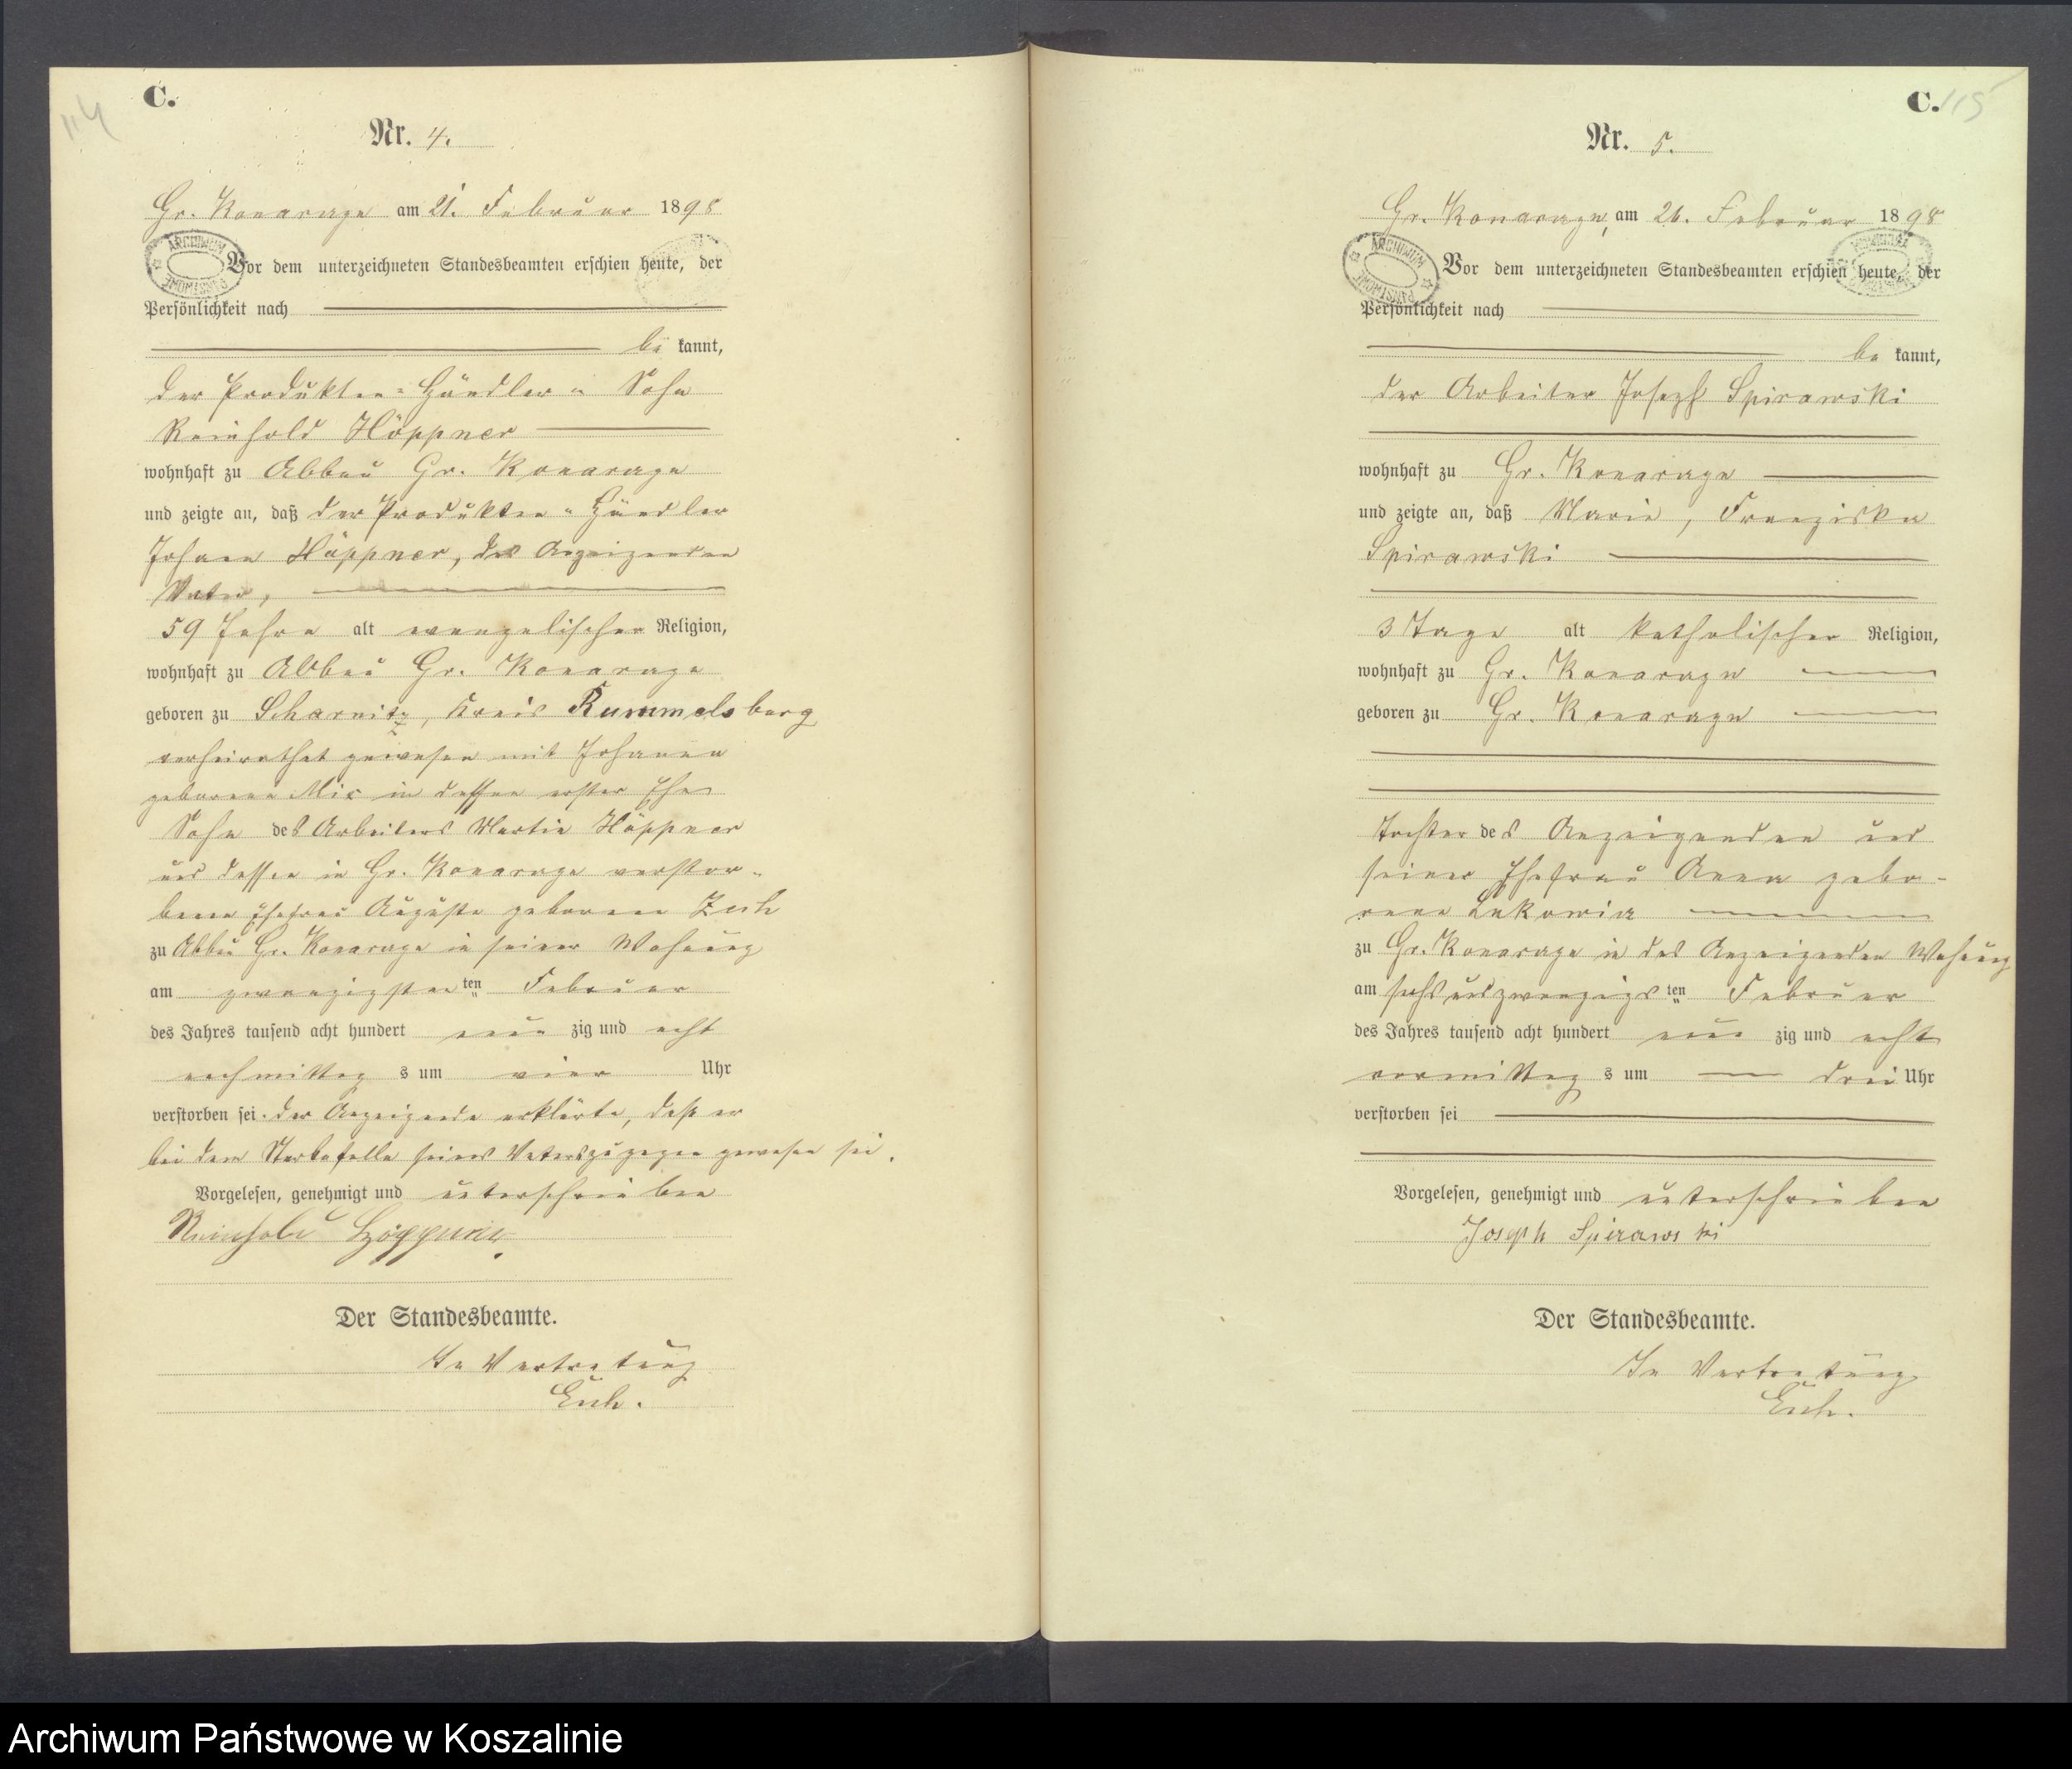 114
C.
Nr. 4.
Gr. Konarzyn am 21. Februar 1898
ARCHIWUM PAŃSTWOWE
Vor dem unterzeichneten Standesbeamten erschien heute, der
Persönlichkeit nach
be kannt,
der Produkten-Händler-Sohn
Reinhold Höppner
wohnhaft zu Abbau Gr. Konarzyn
und zeigte an, daß der Produkten-Händler
Johann Höppner, des Anzeigenden
Vater,
59 Jahre alt evangelischer Religion,
wohnhaft zu Abbau Gr. Konarzyn
geboren zu Scharnitz, Kreis Rummelsburg
verheirathet gewesen mit Johanna
geborene Mix in dessen erster Ehe
Sohn des Arbeiters Martin Höppner
und dessen in Gr. Konarzyn verstor-
benen Ehefrau Auguste geborene
zu Abbau Gr. Konarzyn in seiner Wohnung
am zwanzigsten ten Februar
des Jahres tausend acht hundert neun zig und acht
nachmittag s um vier Uhr
verstorben sei. Der Anzeigende erklärte, daß er
bei dem Sterbefalle seines Vaters zugegen gewesen sei.
Vorgelesen, genehmigt und unterschrieben
Reinhold Höppner.
Der Standesbeamte.
In Vertretung
C. 115
Nr. 5.
Gr. Konarzyn, am 26. Februar 1898
ARCHIWUM PAŃSTWOWE
Vor dem unterzeichneten Standesbeamten erschien heute, der
Persönlichkeit nach
be kannt,
der Arbeiter Joseph Spirawski
wohnhaft zu Gr. Konarzyn
und zeigte an, daß Marie, Franziska
Spirawski
3 Tage alt katholischer Religion,
wohnhaft zu Gr. Konarzyn
geboren zu Gr. Konarzyn
Tochter des Anzeigenden und
seiner Ehefrau Anna gebo-
rene Lukowia
zu Gr. Konarzyn in des Anzeigenden Wohnung
am sechsundzwanzigs ten Februar
des Jahres tausend acht hundert neun zig und acht
vormittag s um drei Uhr
verstorben sei
Vorgelesen, genehmigt und unterschrieben
Joseph Spirawski
Der Standesbeamte.
In Vertretung
Archiwum Państwowe w Koszalinie